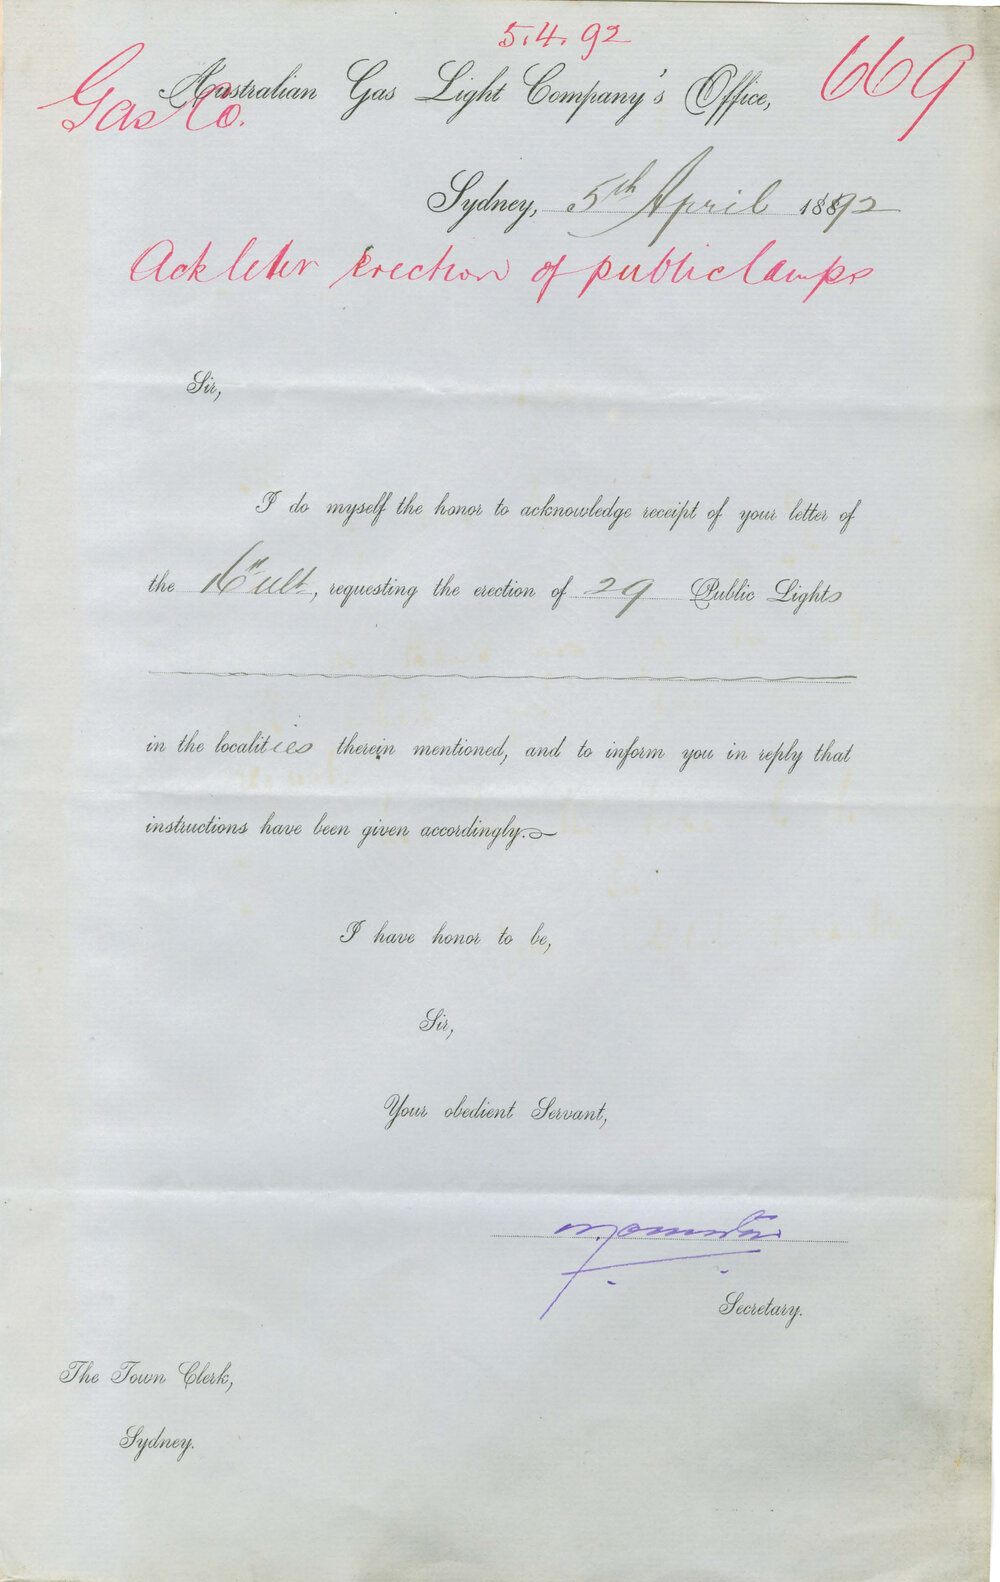 5.4.92
Gas Co.
669
Australian Gas Light Company's Office,
Sydney, 5th April 1892
Ack letter erection of public lamps
Sir,
I do myself the honor to acknowledge receipt of your letter of
the ult, requesting the erection of 29 Public Lights
in the localities therein mentioned, and to inform you in reply that
instructions have been given accordingly.
I have honor to be,
Sir,
Your obedient Servant,
Secretary.
The Town Clerk,
Sydney.